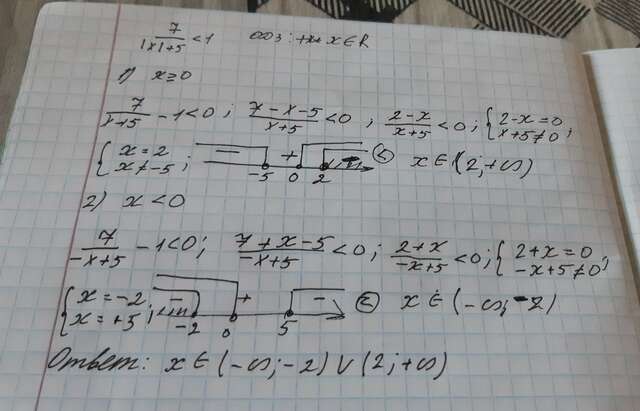 7/(|x|+5) < 1 ОДЗ: x ∈ R
1) x ≥ 0
7/(x+5) - 1 < 0 ; (7-x-5)/(x+5) < 0 , (2-x)/(x+5) < 0 ; { 2-x = 0 x+5 ≠ 0 ,
{ x = 2 x ≠ -5 ; - + - -5 0 2 x ∈ (2; +∞)
2) x < 0
7/(-x+5) - 1 < 0 ; (7+x-5)/(-x+5) < 0 ; (2+x)/(-x+5) < 0 ; { 2+x = 0 -x+5 ≠ 0 ,
{ x = -2 x = +5 ; - + - -2 0 5 x ∈ (-∞; -2)
Ответ: x ∈ (-∞; -2) ∪ (2; +∞)